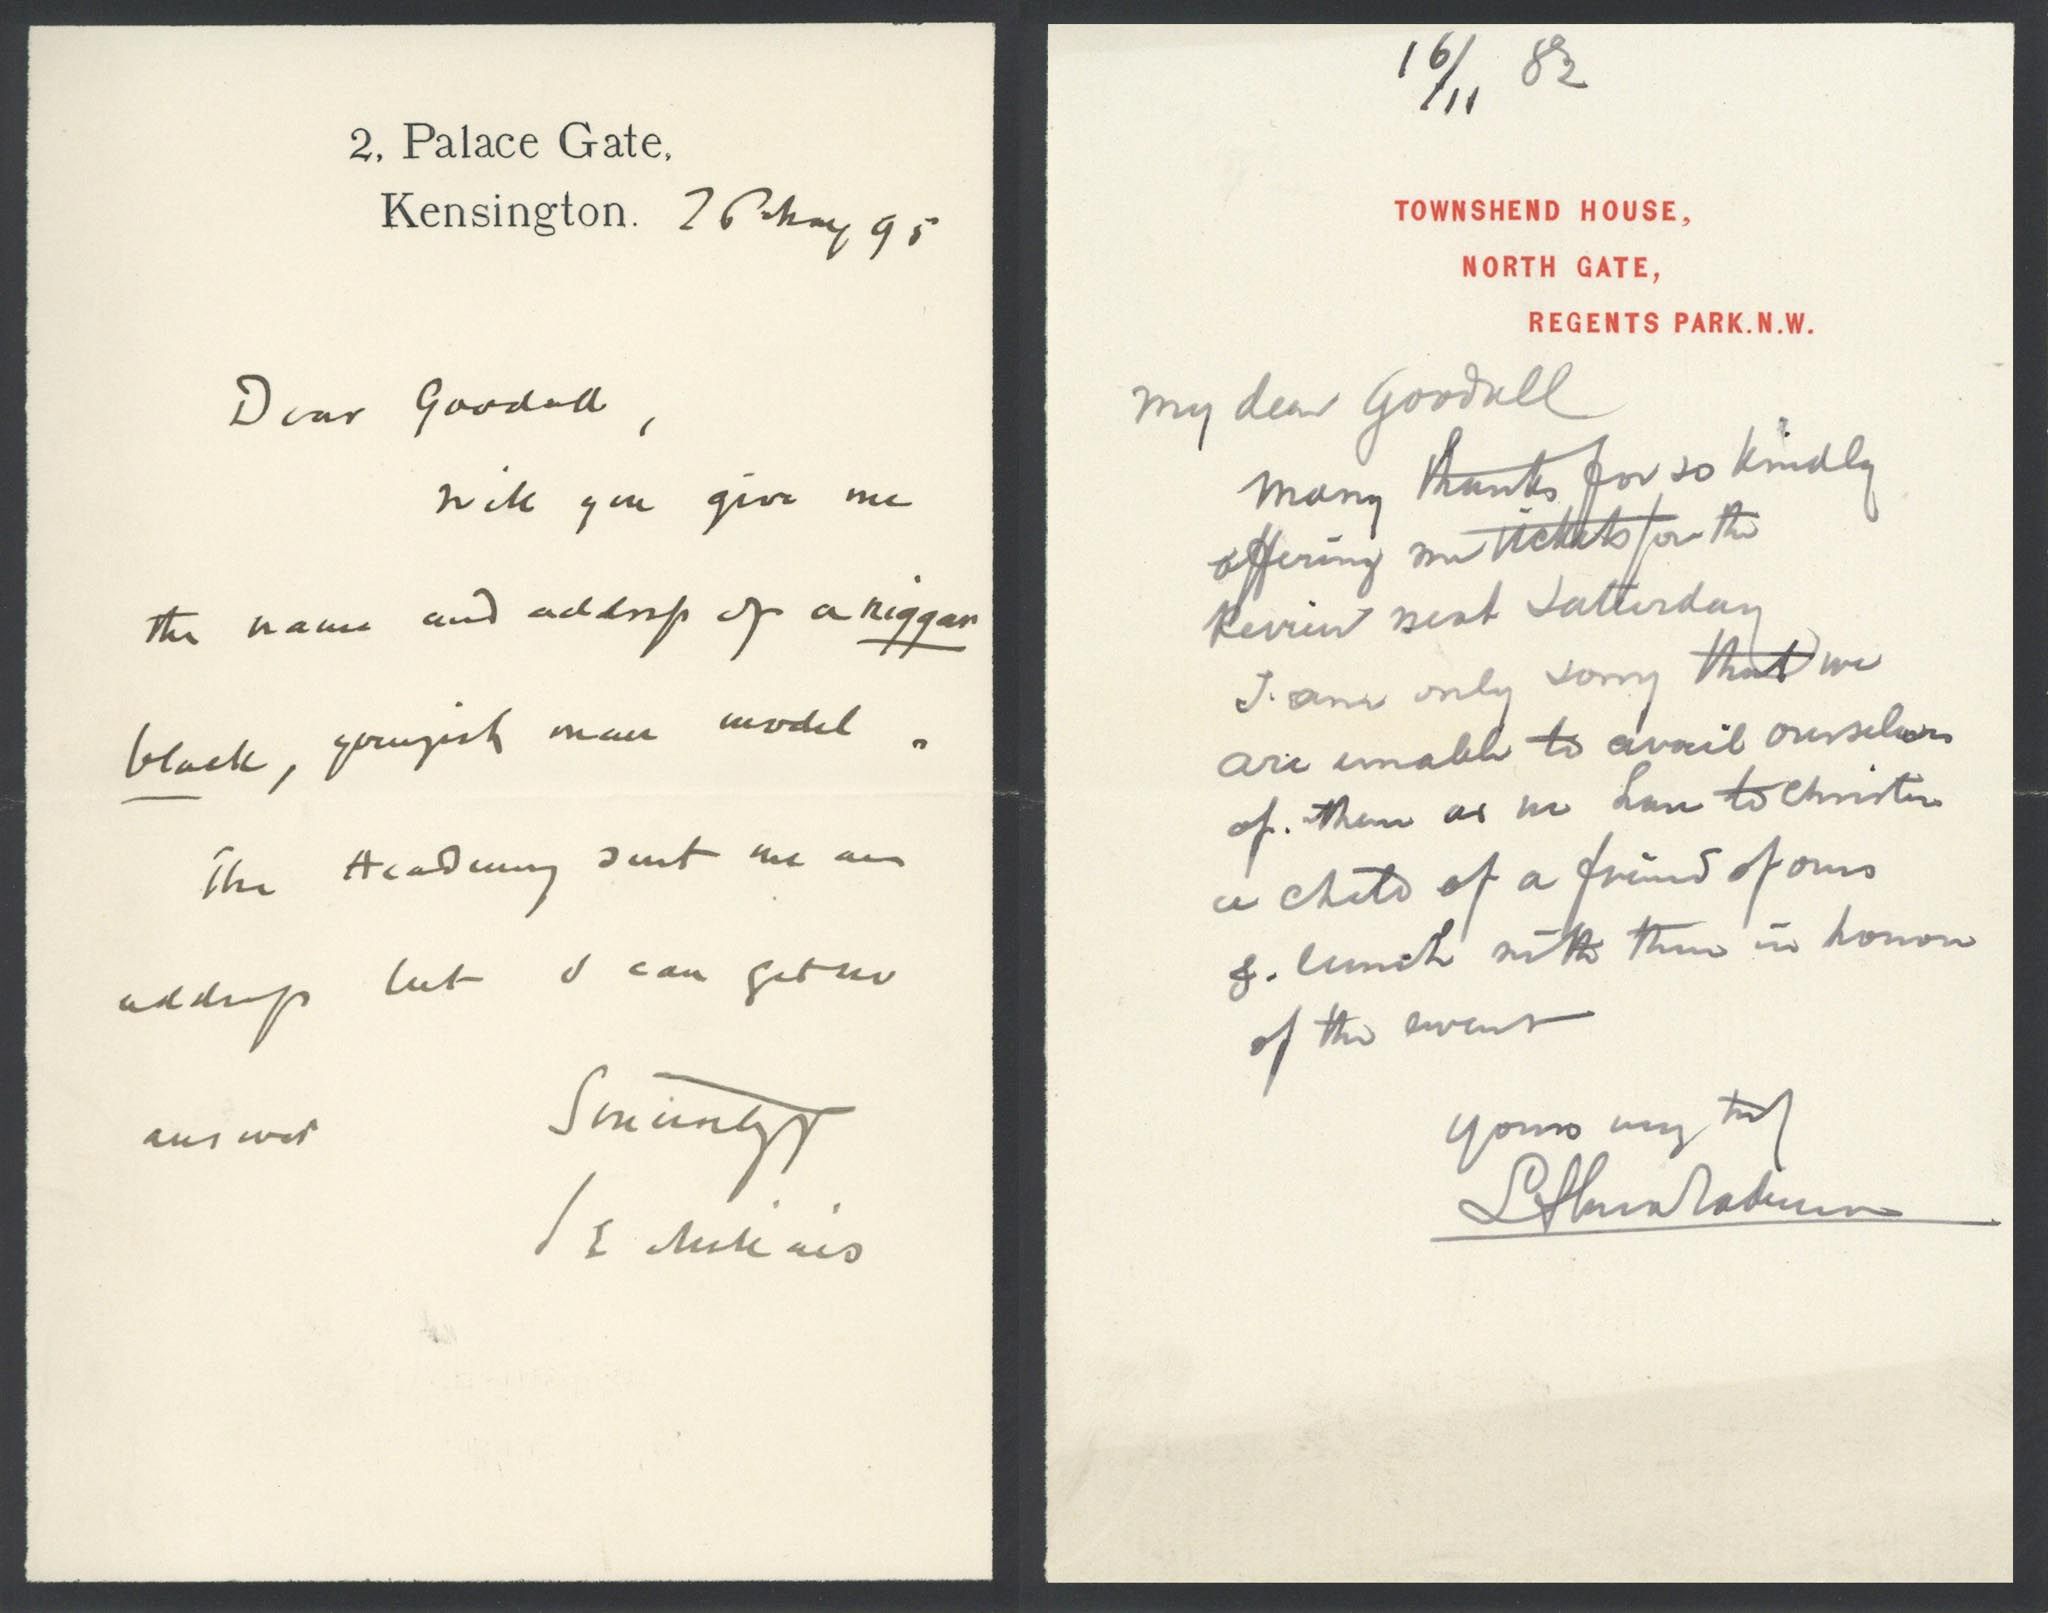 2, Palace Gate,
Kensington. 26 May 95
Dear Goodall,
Will you give me
the name and address of a niggar
black, youngish man model.
The Academy sent me an
address but I can get no
answer
Sincerely
J E Millais
16/11 82
TOWNSHEND HOUSE,
NORTH GATE,
REGENTS PARK.N.W.
My dear Goodall
Many thanks for so kindly
offering me tickets for the
Review next Satturday
I am only sorry that we
are unable to avail ourselves
of them as we have to christen
a child of a friend of ours
&. lunch with them in honor
of the event
yours very try
L Alma Tadema